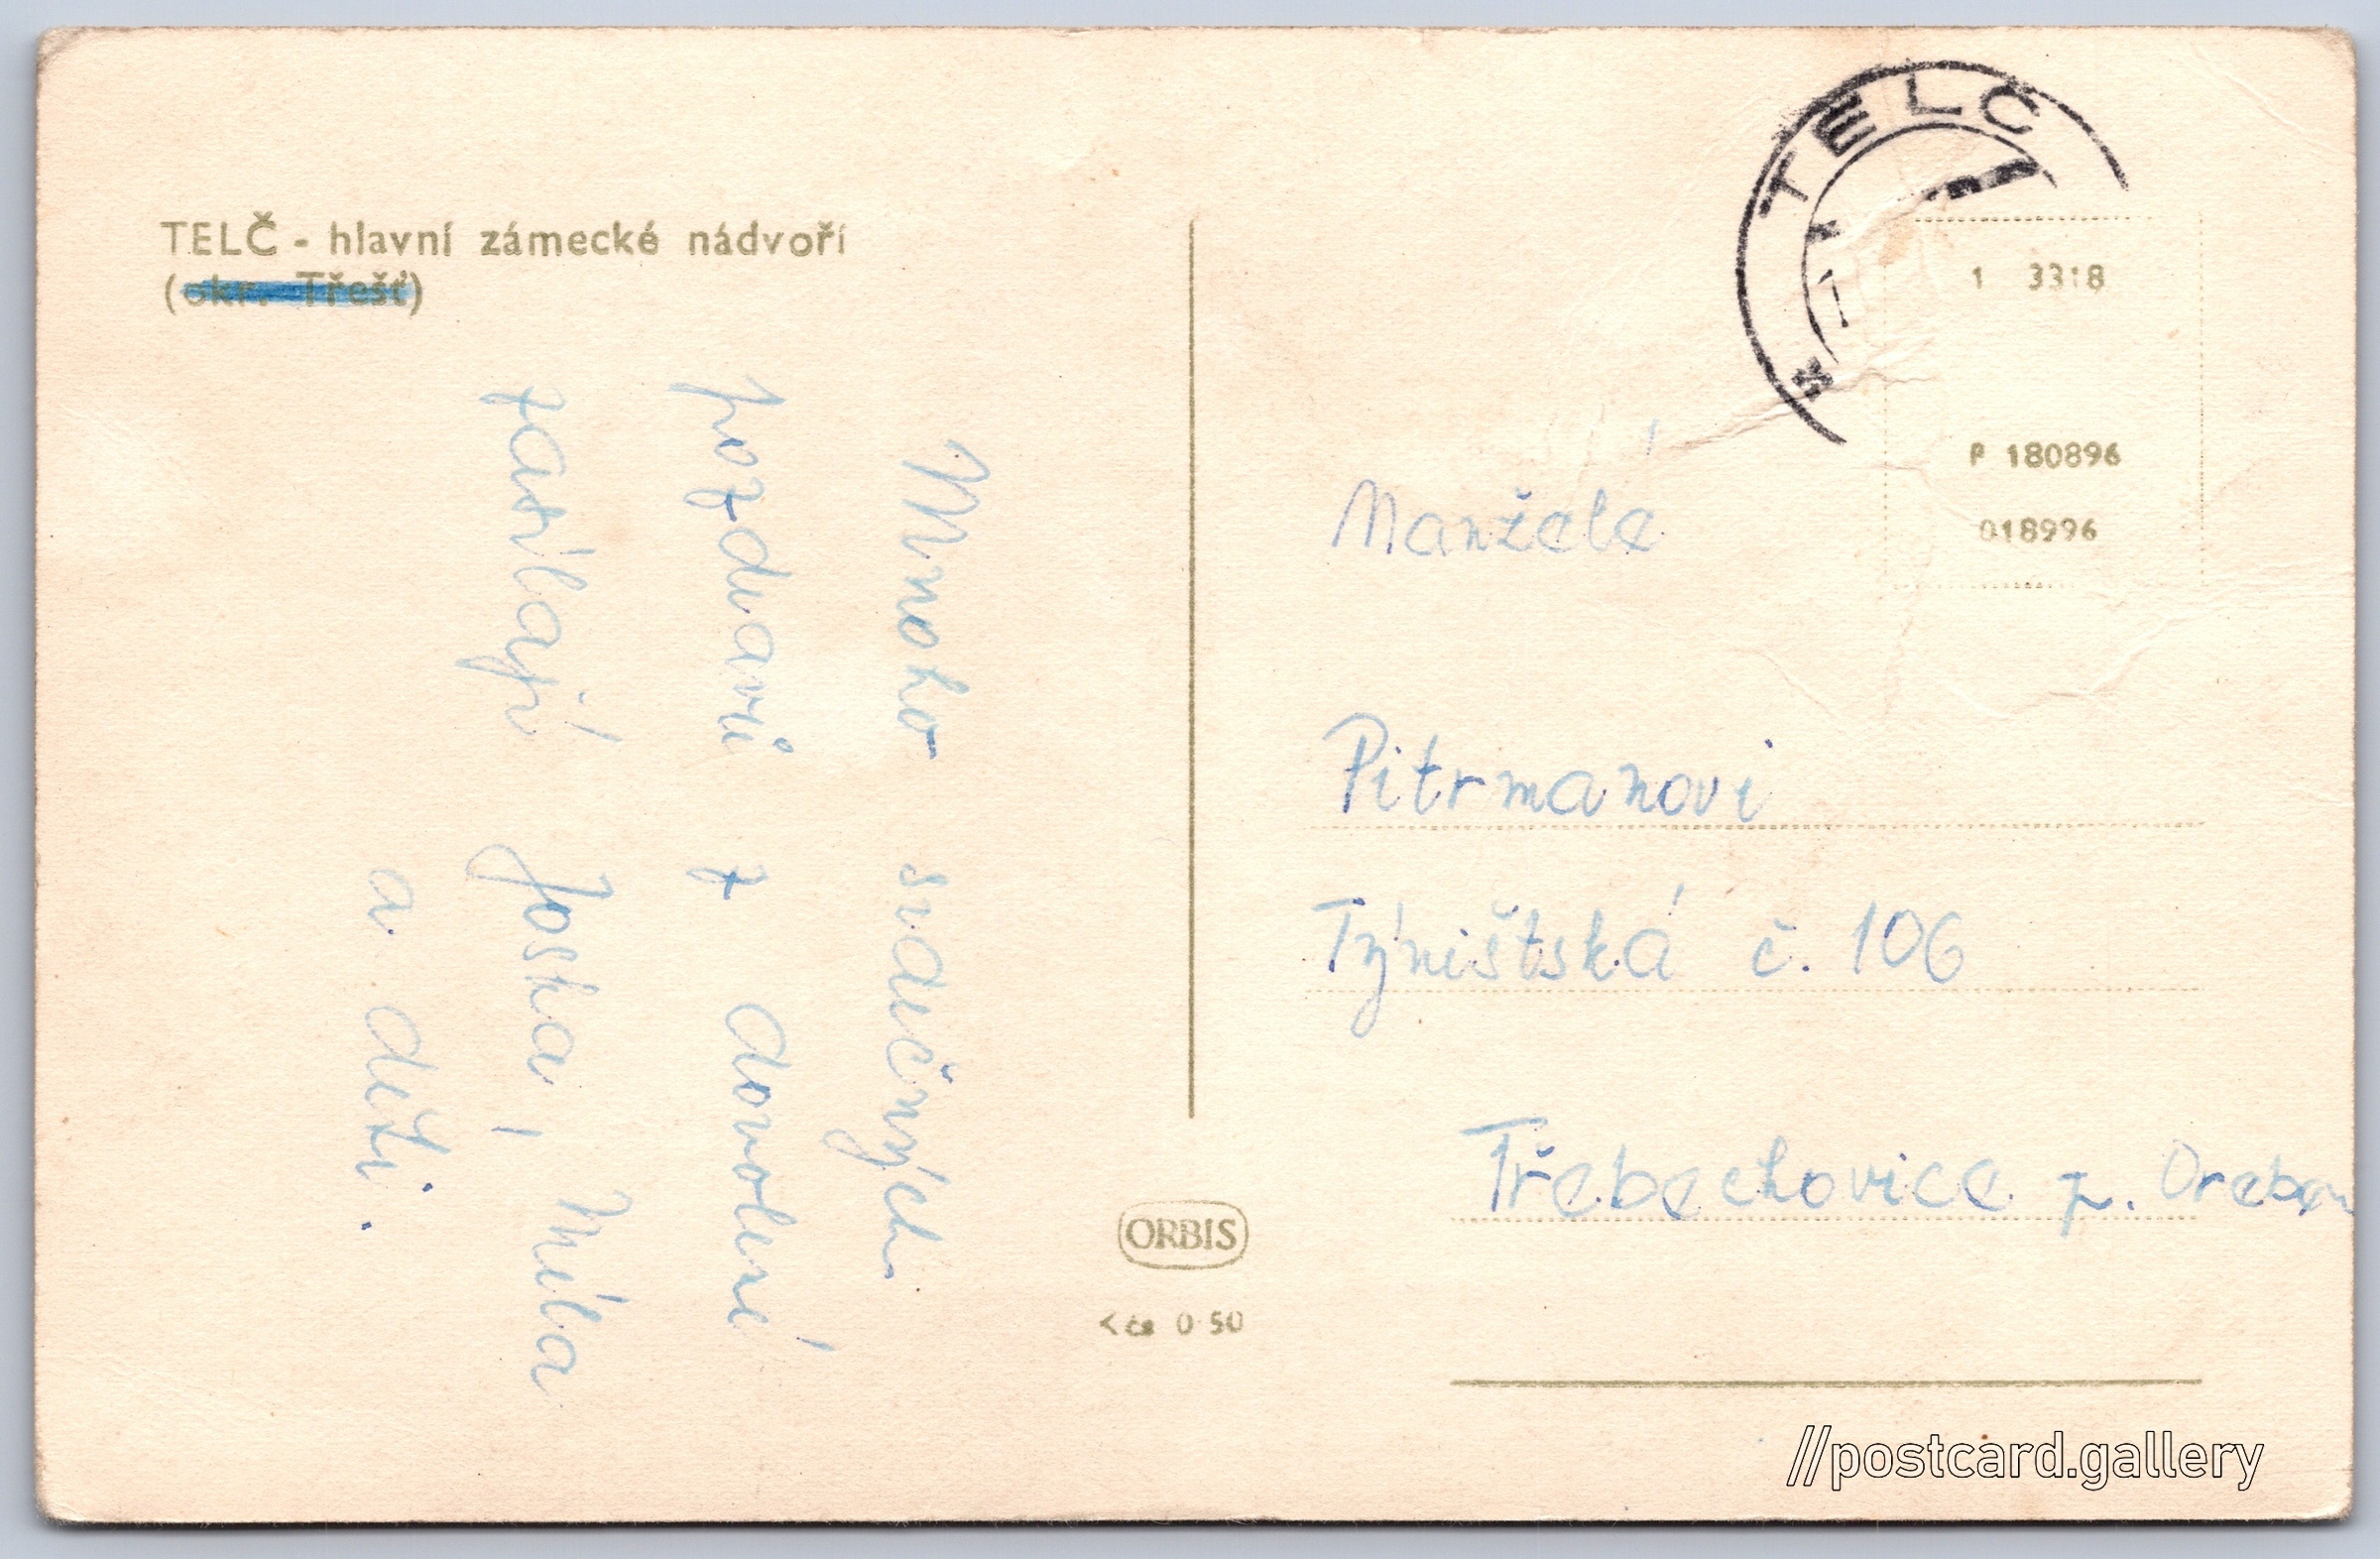 TELČ - hlavní zámecké nádvoří
(okr. Třešť)
Mnoho srdečných
pozdravů z dovolené
zasílají Joska, Míla
a děti.
TELČ
1 3318
P 180896
018996
Manželé
Pitrmanovi
Týništská č. 106
Třebechovice p. Orebem
ORBIS
Kčs 0·50
//postcard.gallery